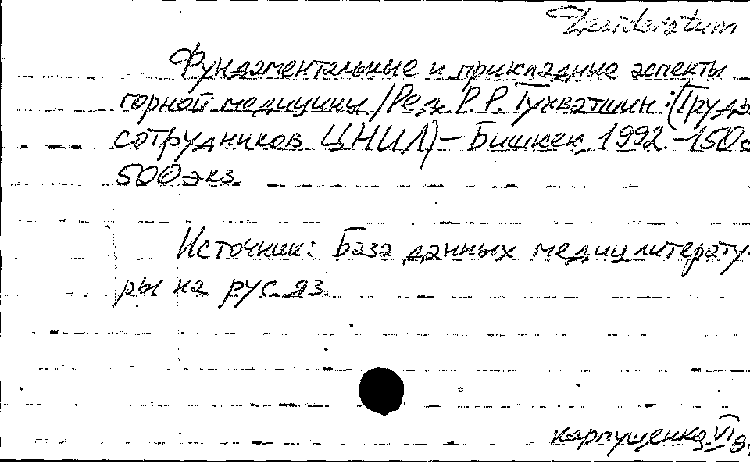 Desideratum
Фундаментальные и прикладные аспекты
горной медицины / Ред. Р.Р. Тухватшин : (Труды
сотрудников ЦНИЛ) - Бишкек, 1992 - 150 с
500 экз.
Источник: База данных медиц литерату-
ры на рус. яз.
карпущенко VI